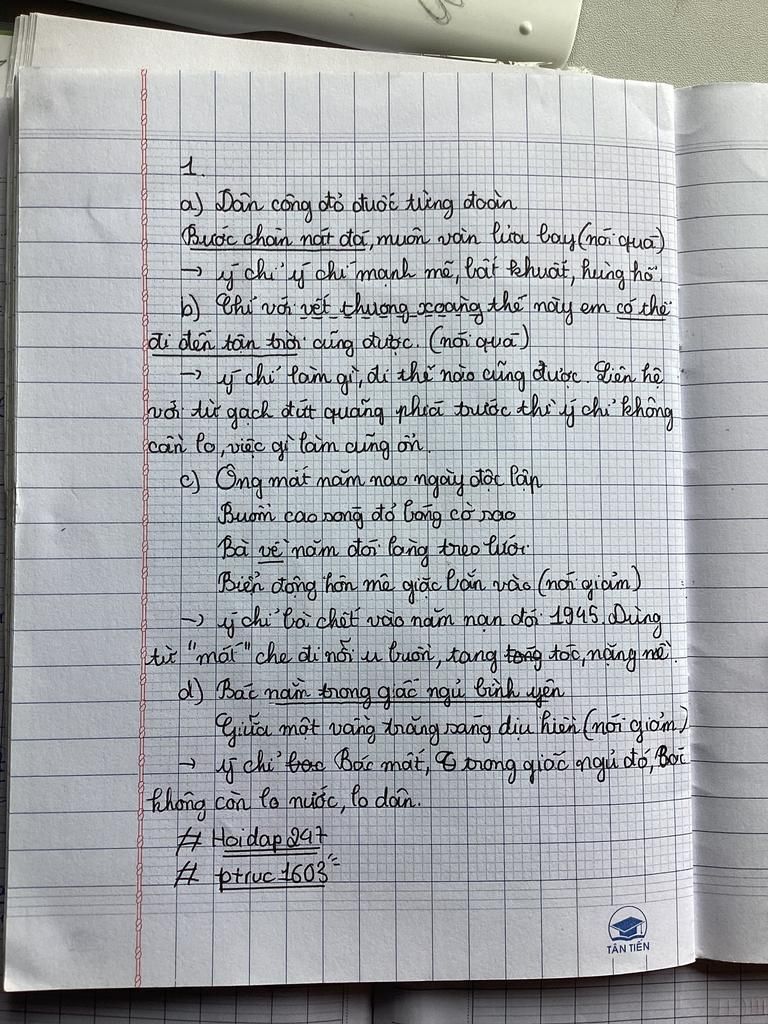 1.
a) Dân công đỏ đuốc từng đoàn
Bước chân nát đá, muôn vàn lửa bay (nói quá)
→ ý chỉ ý chí mạnh mẽ, bất khuất, hùng hổ.
b) Chỉ với vết thương xoàng thế này em có thể
đi đến tận trời cũng được. (nói quá)
→ ý chỉ làm gì, đi thế nào cũng được. Liên hệ
với từ gạch đứt quãng phía trước thì ý chỉ không
cần lo, việc gì làm cũng ổn.
c) Ông mất năm nao ngày độc lập
Buồm cao song đỏ bóng cờ sao
Bà về năm đói làng treo lưới
Biển động hòn mê giặc bắn vào (nói giảm)
→ ý chỉ bà chết vào năm nạn đói 1945. Dùng
từ "mất" che đi nỗi u buồn, tang tóc, nặng nề.
d) Bác nằm trong giấc ngủ bình yên
Giữa một vầng trăng sáng dịu hiền (nói giảm)
→ ý chỉ Bác mất, trong giấc ngủ đó, Bác
không còn lo nước, lo dân.
# Hoidap247
# ptruc1603
TÂN TIẾN